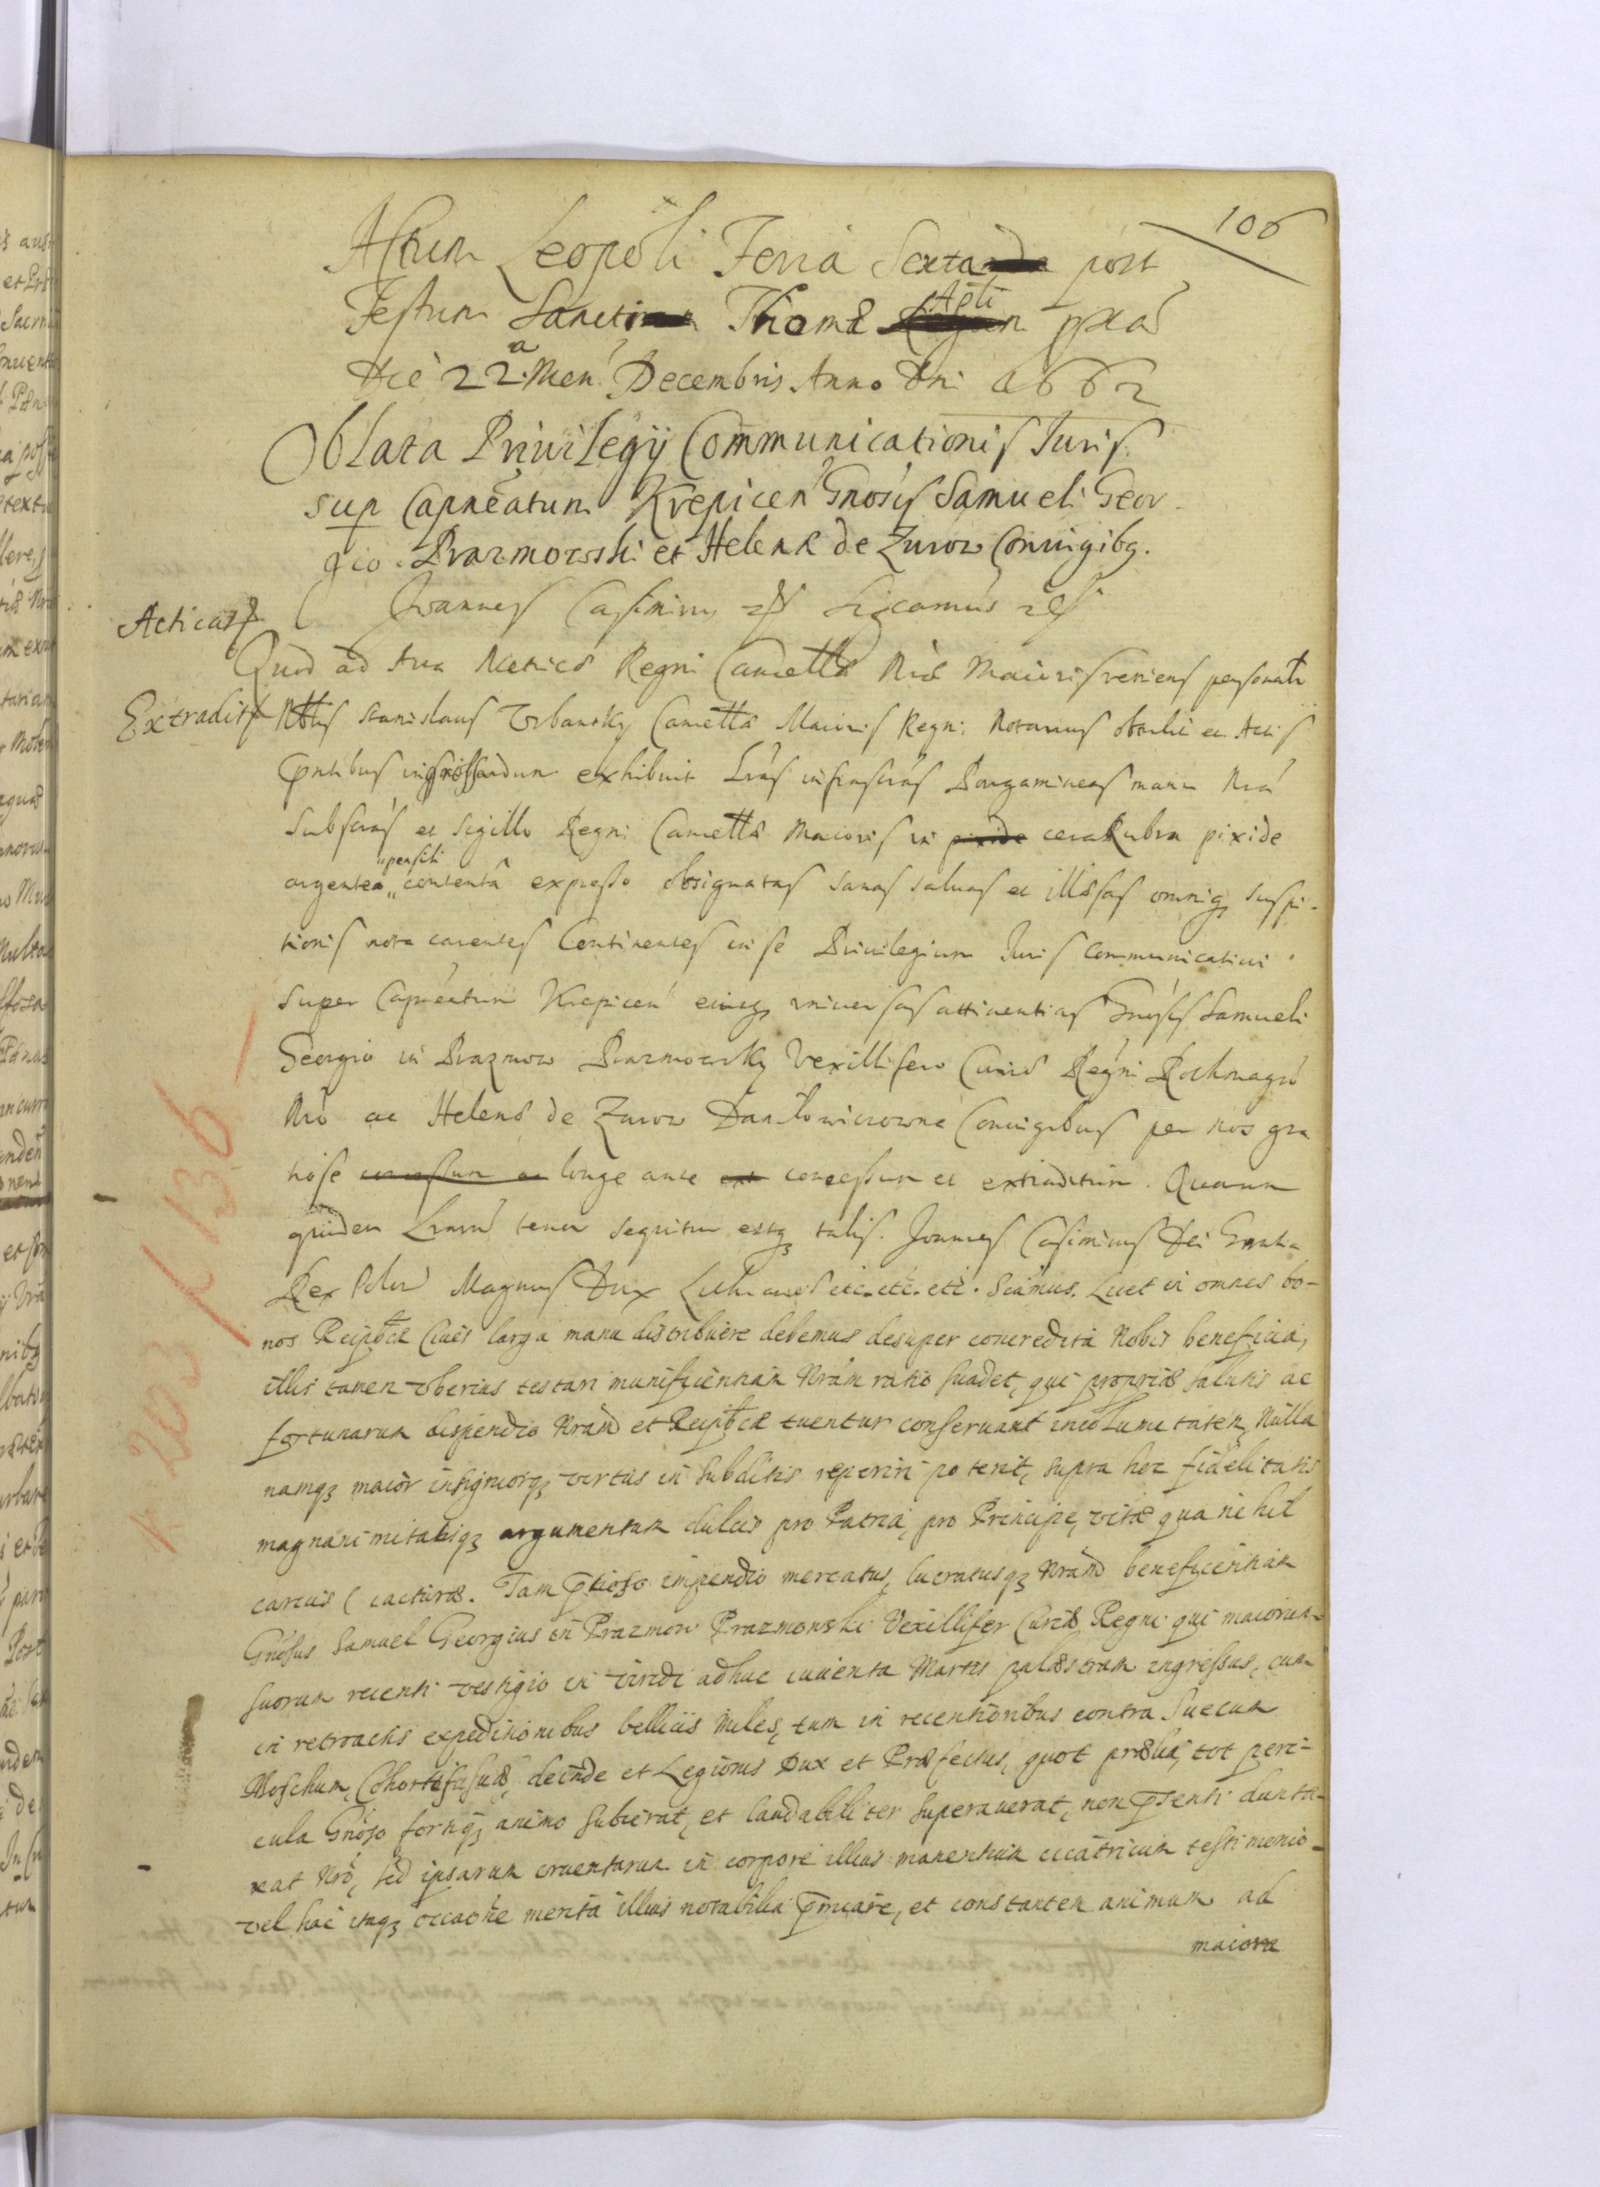 106
Actum Leopoli Feria Sexta post
Festum Sancti Thomæ Apli pxa
die 22.a Men Decembris Anno Dni 1662
Oblata Privilegÿ Communicationis Juris
sup Capneatum Krepicen Gnosis Samueli Geor
gio Prazmowski et Helenæ de Zurow Coniugibq.
Joannes Casimirus Sigcamus
Acticat
Quod ad Acticas Regni Cancellæ Nræ Maioris veniens personalr
Extradit
Nblis Stanislaus Urbansky Cancellæ Maioris Regni Notarius obtulit et Actis
pntibus ingrossandum exhibuit Lras infrascras Pargamineas manu Nra
Subscras et sigillo Regni Cancellæ Maioris in pixide cera Rubra pixide
pensili
argentea contenta expresso obsignatas sanas salvas et illæsas omniq suspi-
tionis nota carentes Continentes in se Privilegium Juris communicativi
super Capneatum Krepicen eiusq universas attinentias Gnosis Samueli
Georgio in Prazmow Prazmowsky Vexillifero Curiæ Regni
Nro ac Helenæ de Zurow Daniłowiczowna Coniugibus per nos gra
tiose longe ante concessum et extraditum. Quarum
quidem Lrarum tenor sequitur estq talis. Joannes Casimirus Dei Gratia
Rex Polæ Magnus Dux Lithuaniæ etc. etc. etc. Scimus. Licet in omnes bo-
nos Reipblcæ Cives larga manu distribuere debemus desuper concredita Nobis beneficia,
illis tamen uberius testari munificentiam Nram ratio suadet, qui propriæ salutis ac
fortunarum dispendio Nram et Reipblcæ tuentur conservant incolumitatem, Nulla
namq maior insigniorq virtus in subditis reperiri poterit, supra hoc fidelitatis
magnanimitatisq argumentum dulcis pro Patria, pro Principe, vitæ qua nihil
carius iacturæ. Tam ptioso impendio mercatus, lucratusq Nram beneficentiam
Gnosus Samuel Georgius in Prazmow Prazmowski Vexillifer Curiæ Regni qui maiorum
suorum recenti vestigio in viridi adhuc iuventa Martis palæstram ingressus, cum
in retroactis expeditionibus bellicis miles, tum in recentioribus contra Suecum
Moschum, Cohortis suæ, deinde et Legionis Dux et Præfectus, quot prælia, tot peri-
cula Gnoso fortiq animo subierat, et laudabiliter superaverat, non psenti dunta-
xat Nro, sed ipsarum cruentarum in corpore illius manentium cicatricum testimonio
vel hac itaq occaone merita illius notabilia pmiare, et constantem animum ad
maiora
f 136